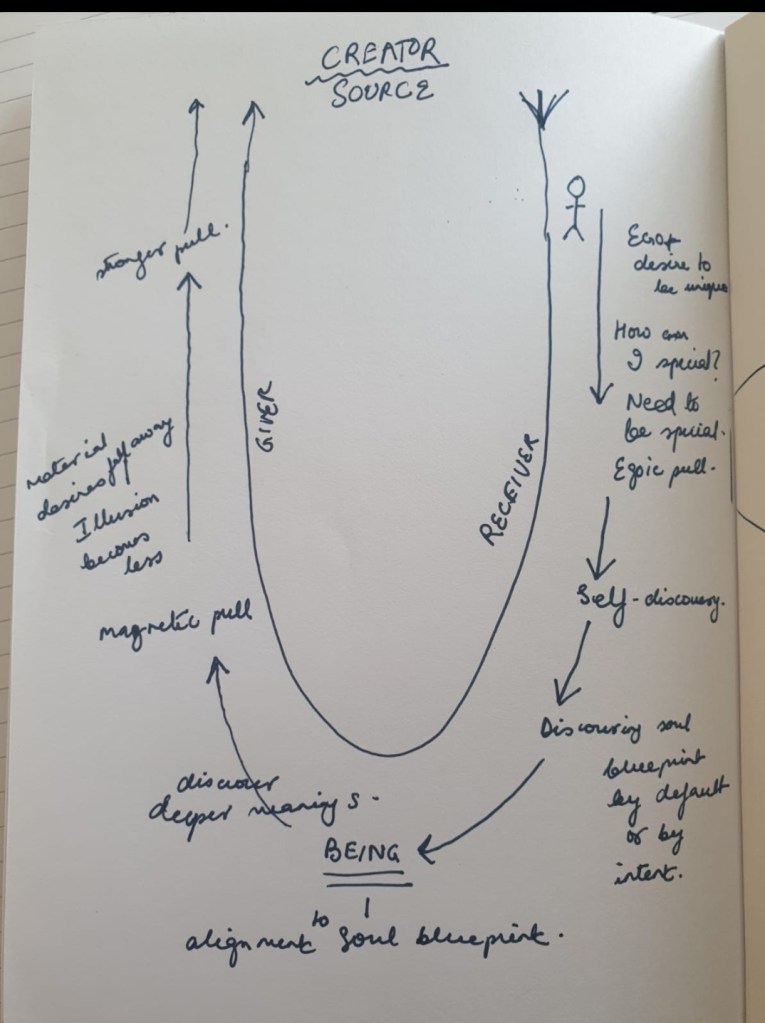 CREATOR
SOURCE
Ego
desire to
be unique
How can
I special?
Need to
be special.
Egoic pull.
RECEIVER
Self-discovery.
Discovering soul
blueprint
by default
or by
intent.
BEING
alignment to Soul blueprint.
discover
deeper meanings.
magnetic pull
Material
desires fall away
Illusion
becomes
less
stronger pull.
GIVER